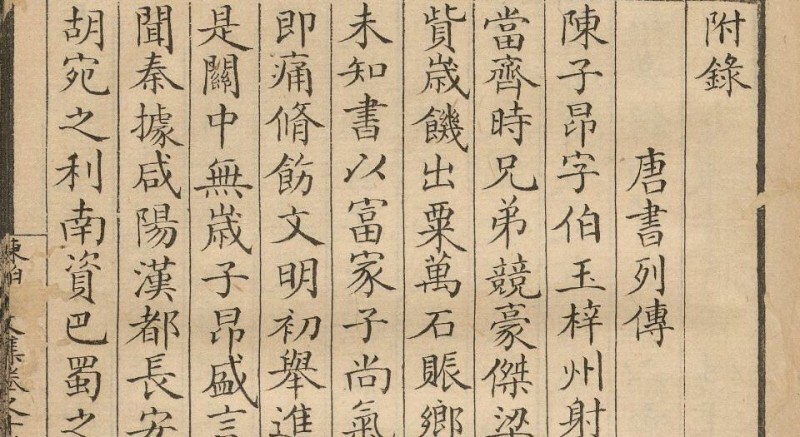 附錄
唐書列傳
陳子昂字伯玉梓州射
當齊時兄弟競豪傑梁
貲歳饑出粟萬石賑鄉
未知書以富家子尚氣
即痛脩飭文明初舉進
是關中無歳子昂盛言
聞秦據咸陽漢都長安
胡宛之利南資巴蜀之
陳伯文集卷之